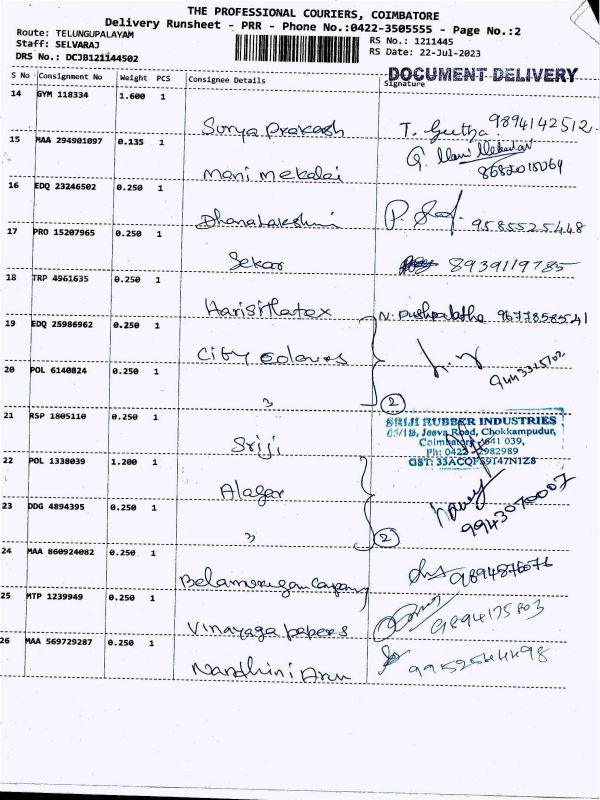 THE PROFESSIONAL COURIERS, COIMBATORE
Delivery Runsheet - PRR - Phone No.:0422-3505555 - Page No.:2
Route: TELUNGUPALAYAM
RS No.: 1211445
Staff: SELVARAJ
RS Date: 22-Jul-2023
DRS No.: DCJB121144502
DOCUMENT DELIVERY
S No Consignment No Weight PCS Consignee Details Signature
14 GYM 118334 1.600 1
Surya Prakash T. Geetha 9894142512
15 MAA 294901097 0.135 1
G. Mani Mekalai
Mani mekalai 8682018064
16 EDQ 23246502 0.250 1
Dhanalakshmi P. 9585525448
17 PRO 15207965 0.250 1
Sekar 8939119785
18 TRP 4961635 0.250 1
Harisitlatex N. Pushpalatha 9677858541
19 EDQ 25986962 0.250 1
City Colours
20 POL 6140824 0.250 1
2
21 RSP 1805110 0.250 1
SRIJI RUBBER INDUSTRIES
Jeeva Road, Chokkampudur,
Coimbatore - 641 039,
Ph: 0422 2982989
GST: 33ACQFS9147N1Z8
Sriji
22 POL 1338039 1.200 1
Alagar
9943070007
23 DDG 4894395 0.250 1
2
24 MAA 860924082 0.250 1
Belamurugan Company 9894876076
25 MTP 1239949 0.250 1
Vinayaga papers 9894175803
26 MAA 569729287 0.250 1
Nandhini Arun 9952544498